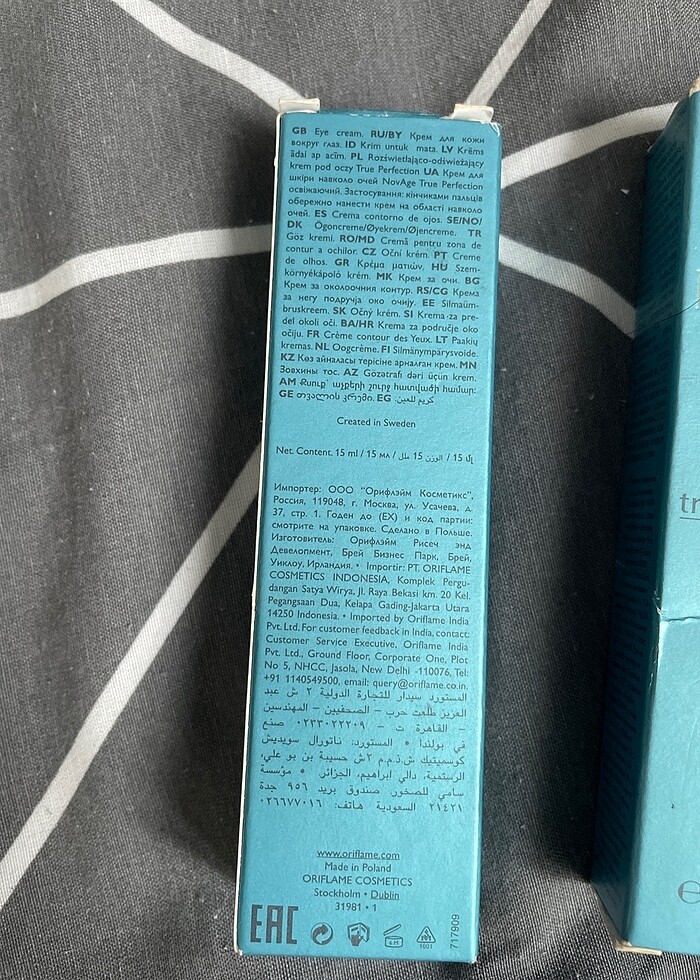 GB Eye cream. RU/BY Крем для кожи
вокруг глаз. ID Krim untuk mata. LV Krēms
ādai ap acīm. PL Rozświetlająco-odświeżający
krem pod oczy True Perfection UA Крем для
шкіри навколо очей NovAge True Perfection
освіжаючий. Застосування: кінчиками пальців
обережно нанести крем на області навколо
очей. ES Crema contorno de ojos. SE/NO/
DK Ögoncreme/Øyekrem/Øjencreme. TR
Göz kremi. RO/MD Cremă pentru zona de
contur a ochilor. CZ Oční krém. PT Creme
de olhos. GR Κρέμα ματιών. HU Szem-
környékápoló krém. MK Крем за очи. BG
Крем за околоочния контур. RS/CG Крема
за негу подручја око очију. EE Silmaüm-
bruskreem. SK Očný krém. SI Krema za pre-
del okoli oči. BA/HR Krema za područje oko
očiju. FR Crème contour des Yeux. LT Paakių
kremas. NL Oogcrème. FI Silmänympärysvoide.
KZ Көз айналасы терісіне арналған крем. MN
Зовхины тос. AZ Gözətrafı dəri üçün krem.
AM Քսուք՝ աչքերի շուրջ հատվածի համար:
GE თვალის კრემი. EG كريم للعين.
Created in Sweden
Net. Content. 15 ml / 15 мл / الوزن 15 ملل / 15 մլ
Импортер: ООО "Орифлэйм Косметикс",
Россия, 119048, г. Москва, ул. Усачева, д.
37, стр. 1. Годен до (EX) и код партии:
смотрите на упаковке. Сделано в Польше.
Изготовитель: Орифлэйм Рисеч энд
Девелопмент, Брей Бизнес Парк, Брей,
Уиклоу, Ирландия. • Importir: PT. ORIFLAME
COSMETICS INDONESIA, Komplek Pergu-
dangan Satya Wirya, Jl. Raya Bekasi km. 20 Kel.
Pegangsaan Dua, Kelapa Gading-Jakarta Utara
14250 Indonesia. • Imported by Oriflame India
Pvt. Ltd. For customer feedback in India, contact:
Customer Service Executive, Oriflame India
Pvt. Ltd., Ground Floor, Corporate One, Plot
No 5, NHCC, Jasola, New Delhi -110076, Tel:
+91 1140549500, email: query@oriflame.co.in.
المستورد سيدار للتجارة الدولية ٢ ش عبد
العزيز طلعت حرب – الصحفيين – المهندسين
– القاهرة ت – ٠٢٣٣٠٢٢٢٠٩ صنع
في بولندا • المستورد: ناتورال سويديش
كوسميتيك ش.ذ.م.م ٢ش حسيبة بن بو علي،
الرستمية، دالي ابراهيم، الجزائر • مؤسسة
سامي للصخور صندوق بريد ٩٥٦ جدة
٢١٤٢١ السعودية هاتف: ٠٢٦٦٧٧٠١٦
www.oriflame.com
Made in Poland
ORIFLAME COSMETICS
Stockholm • Dublin
31981 • 1
EAC
6 M
1001
717909
tr
e